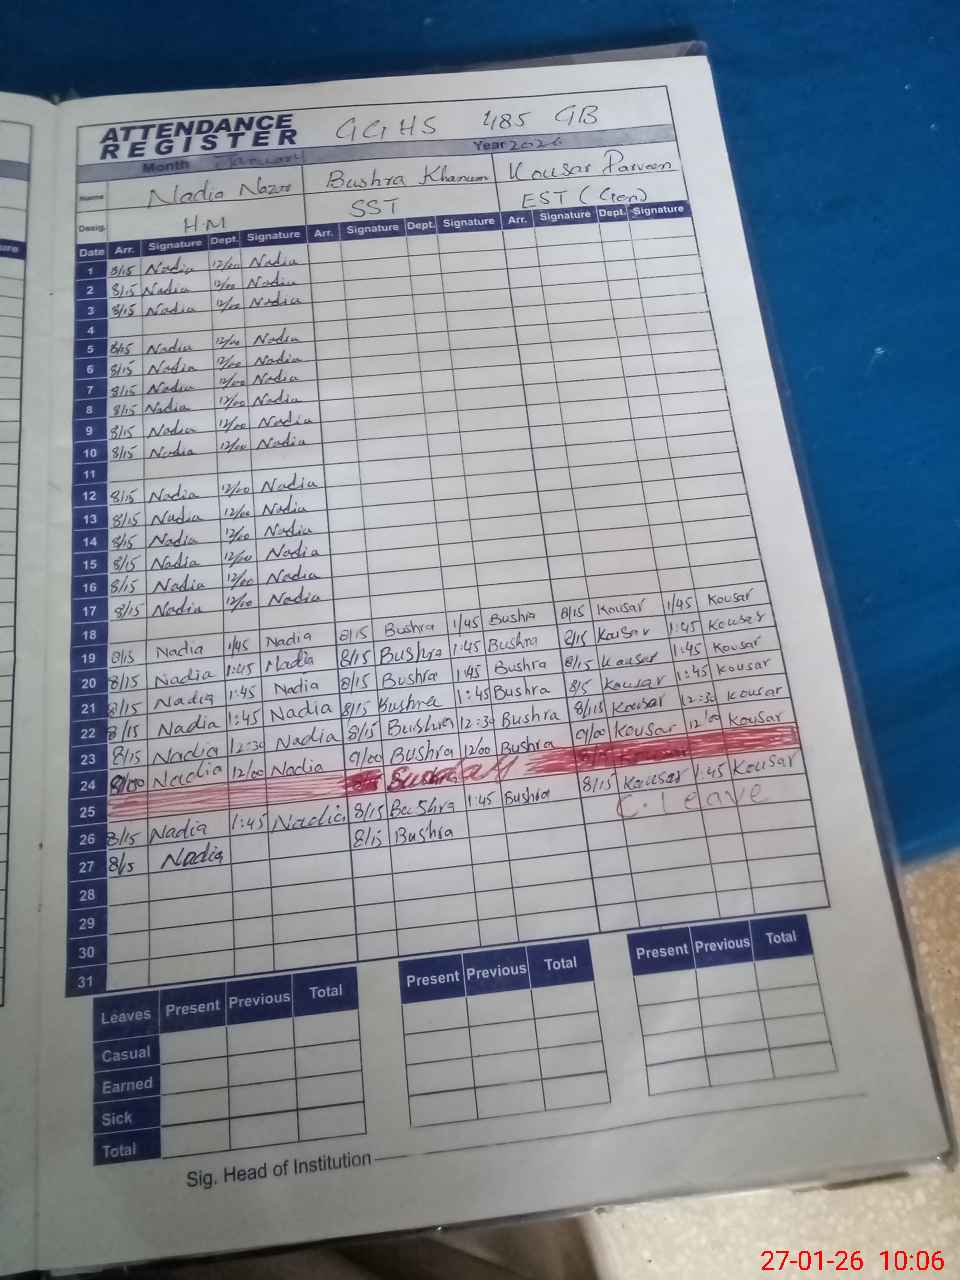 ATTENDANCE REGISTER GGHS 485 GB
Month January Year 2026
Name Nadia Nazir Bushra Khanum Kousar Parveen
Desig. H.M SST EST (Gen)
Date Arr. Signature Dept. Signature Arr. Signature Dept. Signature Arr. Signature Dept. Signature
1 8/15 Nadia 12/00 Nadia
2 8/15 Nadia 12/00 Nadia
3 8/15 Nadia 12/00 Nadia
4
5 8/15 Nadia 12/00 Nadia
6 8/15 Nadia 12/00 Nadia
7 8/15 Nadia 12/00 Nadia
8 8/15 Nadia 12/00 Nadia
9 8/15 Nadia 12/00 Nadia
10 8/15 Nadia 12/00 Nadia
11
12 8/15 Nadia 12/00 Nadia
13 8/15 Nadia 12/00 Nadia
14 8/15 Nadia 12/00 Nadia
15 8/15 Nadia 12/00 Nadia
16 8/15 Nadia 12/00 Nadia
17 8/15 Nadia 12/00 Nadia
18
19 8/15 Nadia 1/45 Nadia 8/15 Bushra 1/45 Bushra 8/15 Kousar 1/45 Kousar
20 8/15 Nadia 1:45 Nadia 8/15 Bushra 1:45 Bushra 8/15 Kousar 1:45 Kousar
21 8/15 Nadia 1:45 Nadia 8/15 Bushra 1:45 Bushra 8/15 Kousar 1:45 Kousar
22 8/15 Nadia 1:45 Nadia 8/15 Bushra 1:45 Bushra 8/5 Kousar 1:45 Kousar
23 8/15 Nadia 12:30 Nadia 8/15 Bushra 12:30 Bushra 8/15 Kousar 12:30 Kousar
24 8/00 Nadia 12/00 Nadia 9/00 Bushra 12/00 Bushra 9/00 Kousar 12/00 Kousar
25
26 8/15 Nadia 1:45 Nadia 8/15 Bushra 1:45 Bushra 8/15 Kousar 1:45 Kousar
27 8/5 Nadia 8/15 Bushra C. Leave
28
29
30
31
Leaves Present Previous Total Present Previous Total Present Previous Total
Casual
Earned
Sick
Total
Sig. Head of Institution
27-01-26 10:06